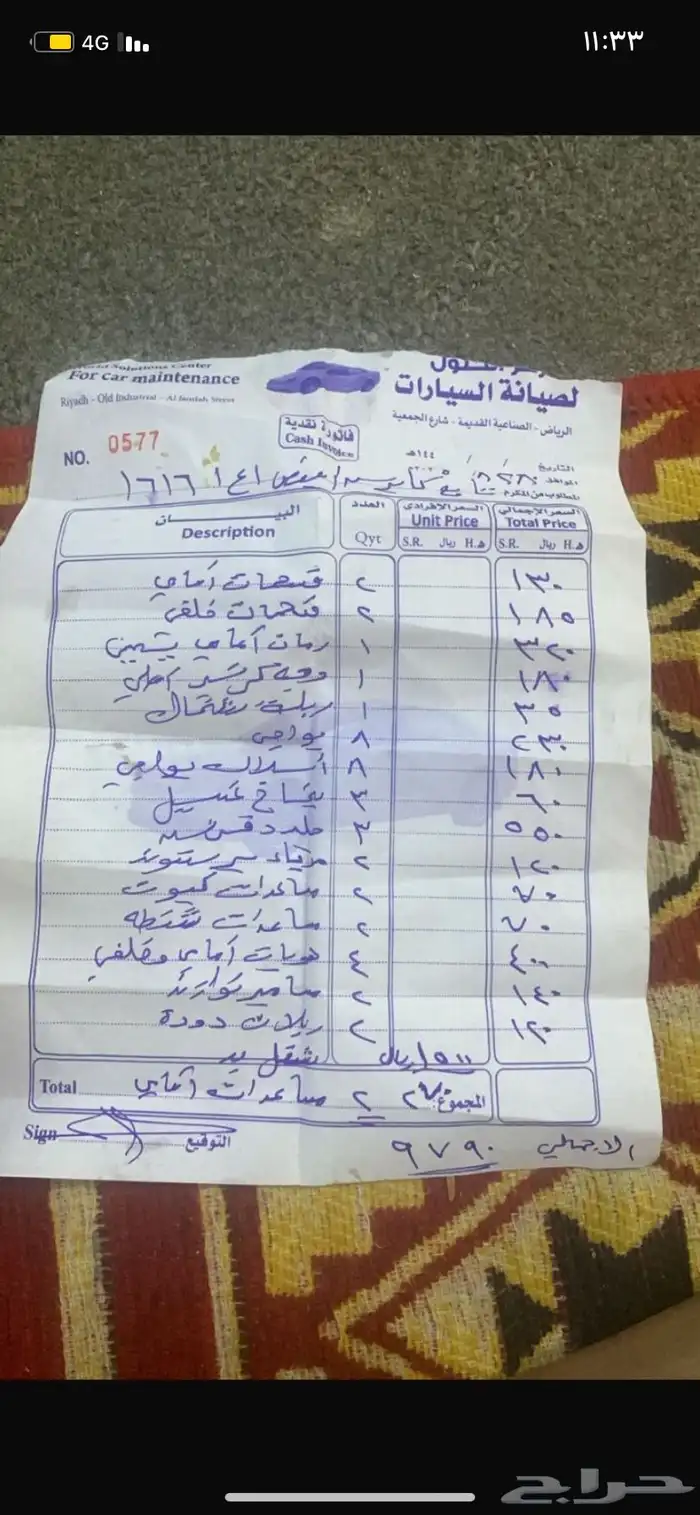 4G ١١:٣٣
World Solutions Center
For car maintenance
Riyadh - Old Industrial - Al Jamiah Street
لصيانة السيارات
الرياض - الصناعية القديمة - شارع الجمعية
فاتورة نقدية
Cash Invoice
NO. 0577
التاريخ / / ١٤٤هـ
الموافق
المطلوب من المكرم
ابيض ١٦١٦
البيـــــان العدد السعر الافرادي السعر الإجمالي
Description Qyt Unit Price Total Price
S.R. ريال H.هـ S.R. ريال H.هـ
فحمات أمامي ٢ ١٣٠
فحمات خلفي ٢ ١٨٥
رمان أمامي يمين ١ ٣٢٠
وجه كرسي اصلي ١ ١٨٠
ربلة شمال ١ ٣٥
بواجي ٨ ٢٣٠
أسلاك بواجي ٨ ١٨٠
بخاخ غسيل ٤ ٦٠
جلد ٣ ٥٥٠
٢ ١٢٠
مساعدات كبوت ٢ ٧٠
مساعدات شنطه ٢ ٧٠
هوبات أمامي وخلفي ٤ ٤٠٠
مسامير توازن ٢ ١٤٠
ربلات دودة ٢ ١٢٠
شغل يد ريال
Total مساعدات أمامي ٢ المجموع:
Sign التوقيع
الاجمالي ٩٧٩٠
حراج